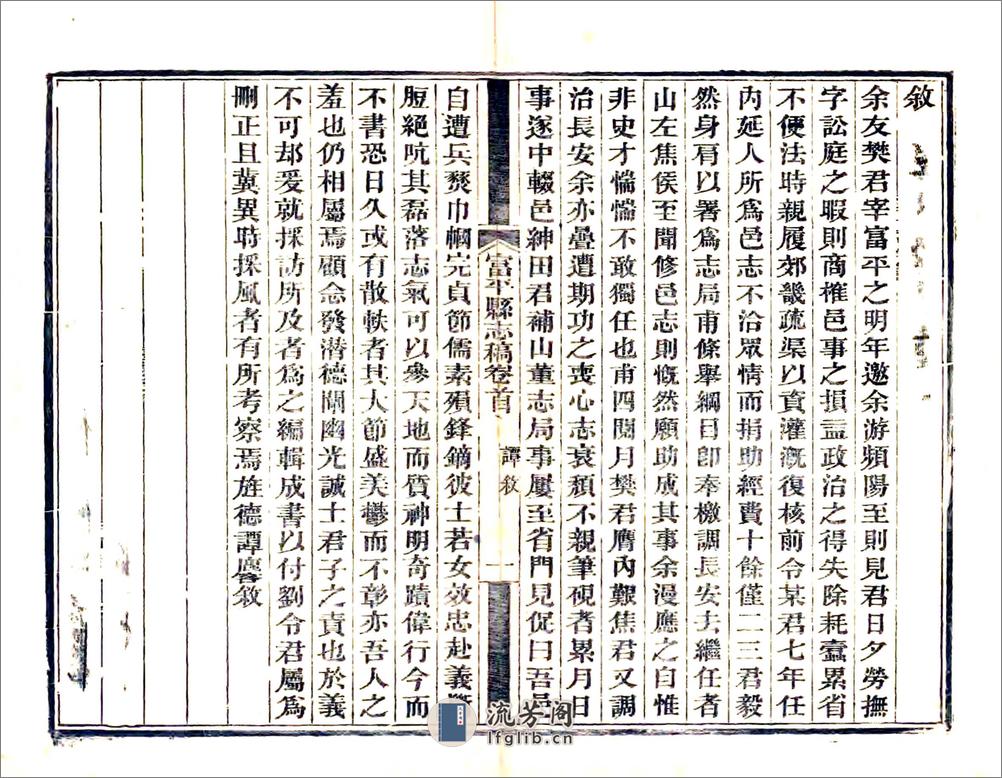 敘
余友樊君宰富平之明年邀余游頻陽至則見君日夕勞撫
字訟庭之暇則商榷邑事之損益政治之得失除耗蠹累省
不便法時親履郊畿疏渠以資灌溉復核前令某君七年任
內延人所為邑志不洽眾情而捐助經費十餘僅二三君毅
然身肩以署為志局甫條舉綱目卽奉檄調長安去繼任者
山左焦侯至聞修邑志則慨然願助成其事余漫應之自惟
非史才惴惴不敢獨任也甫四閱月樊君膺內艱焦君又調
治長安余亦疊遭期功之喪心志衰頹不親筆硯者累月日
事遂中輟邑紳田君補山董志局事屢至省門見促曰吾邑
富平縣志稿卷首
譚敘
一
自遭兵燹巾幗完貞節儒素殞鋒鏑彼士若女效忠赴義
脰絕吭其磊落志氣可以參天地而質神明奇蹟偉行今而
不書恐日久或有散軼者其大節盛美鬱而不彰亦吾人之
羞也仍相屬焉顧念發潛德闡幽光誠士君子之責也於義
不可却爰就採訪所及者為之編輯成書以付劉令君屬為
刪正且冀異時採風者有所考察焉旌德譚麐敘
流芳阁
lfglib.cn